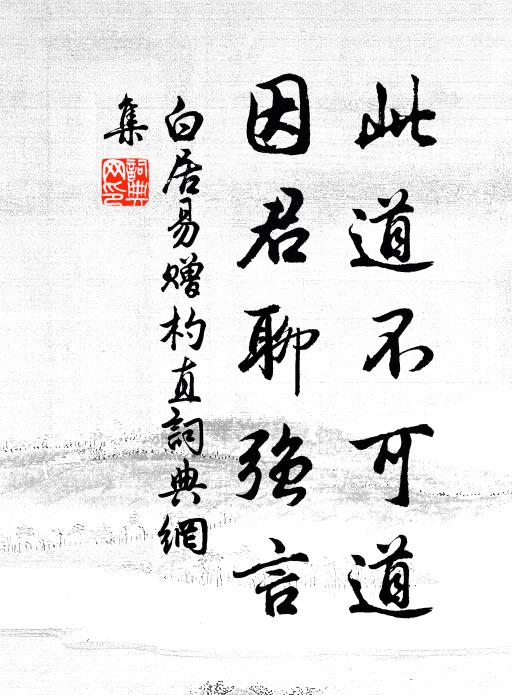 此道不可道
因君聊強言
白居易贈杓直詞典網
集
詞典
网印